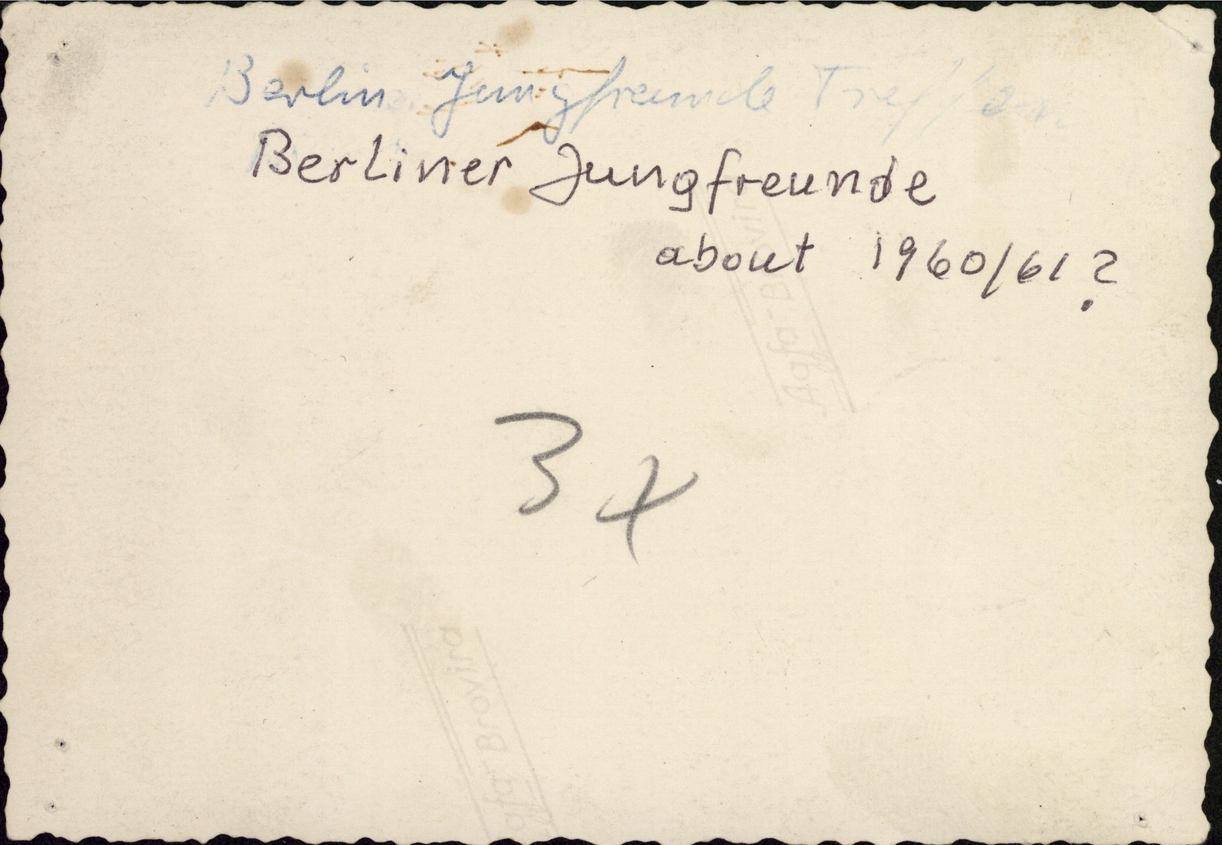 Berlin Jungfreunde Treffen
Berliner Jungfreunde
about 1960/61?
Agfa-Brovira
3x
Agfa-Brovira